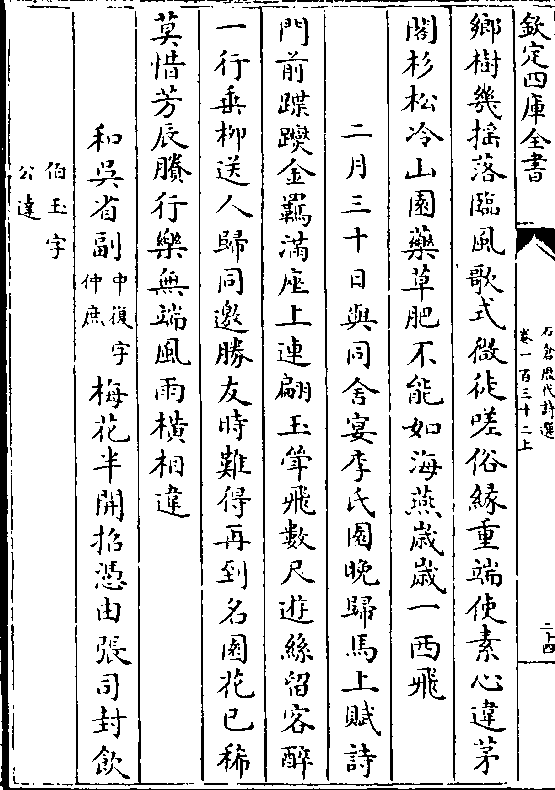 欽定四庫全書
石倉歷代詩選
卷一百三十二上
二十四
鄉樹幾摇落臨風歌式微徒嗟俗緣重端使素心違茅
閣杉松冷山園藥草肥不能如海燕歲歲一西飛
二月三十日與同舍宴李氏園晚歸馬上賦詩
門前蹀躞金羈滿座上連翩玉斝飛數尺遊絲留客醉
一行垂柳送人歸同邀勝友時難得再到名園花已稀
莫惜芳辰賸行樂無端風雨横相違
和吳省副中復字仲庶梅花半開招憑由張司封飲
伯玉字
公達